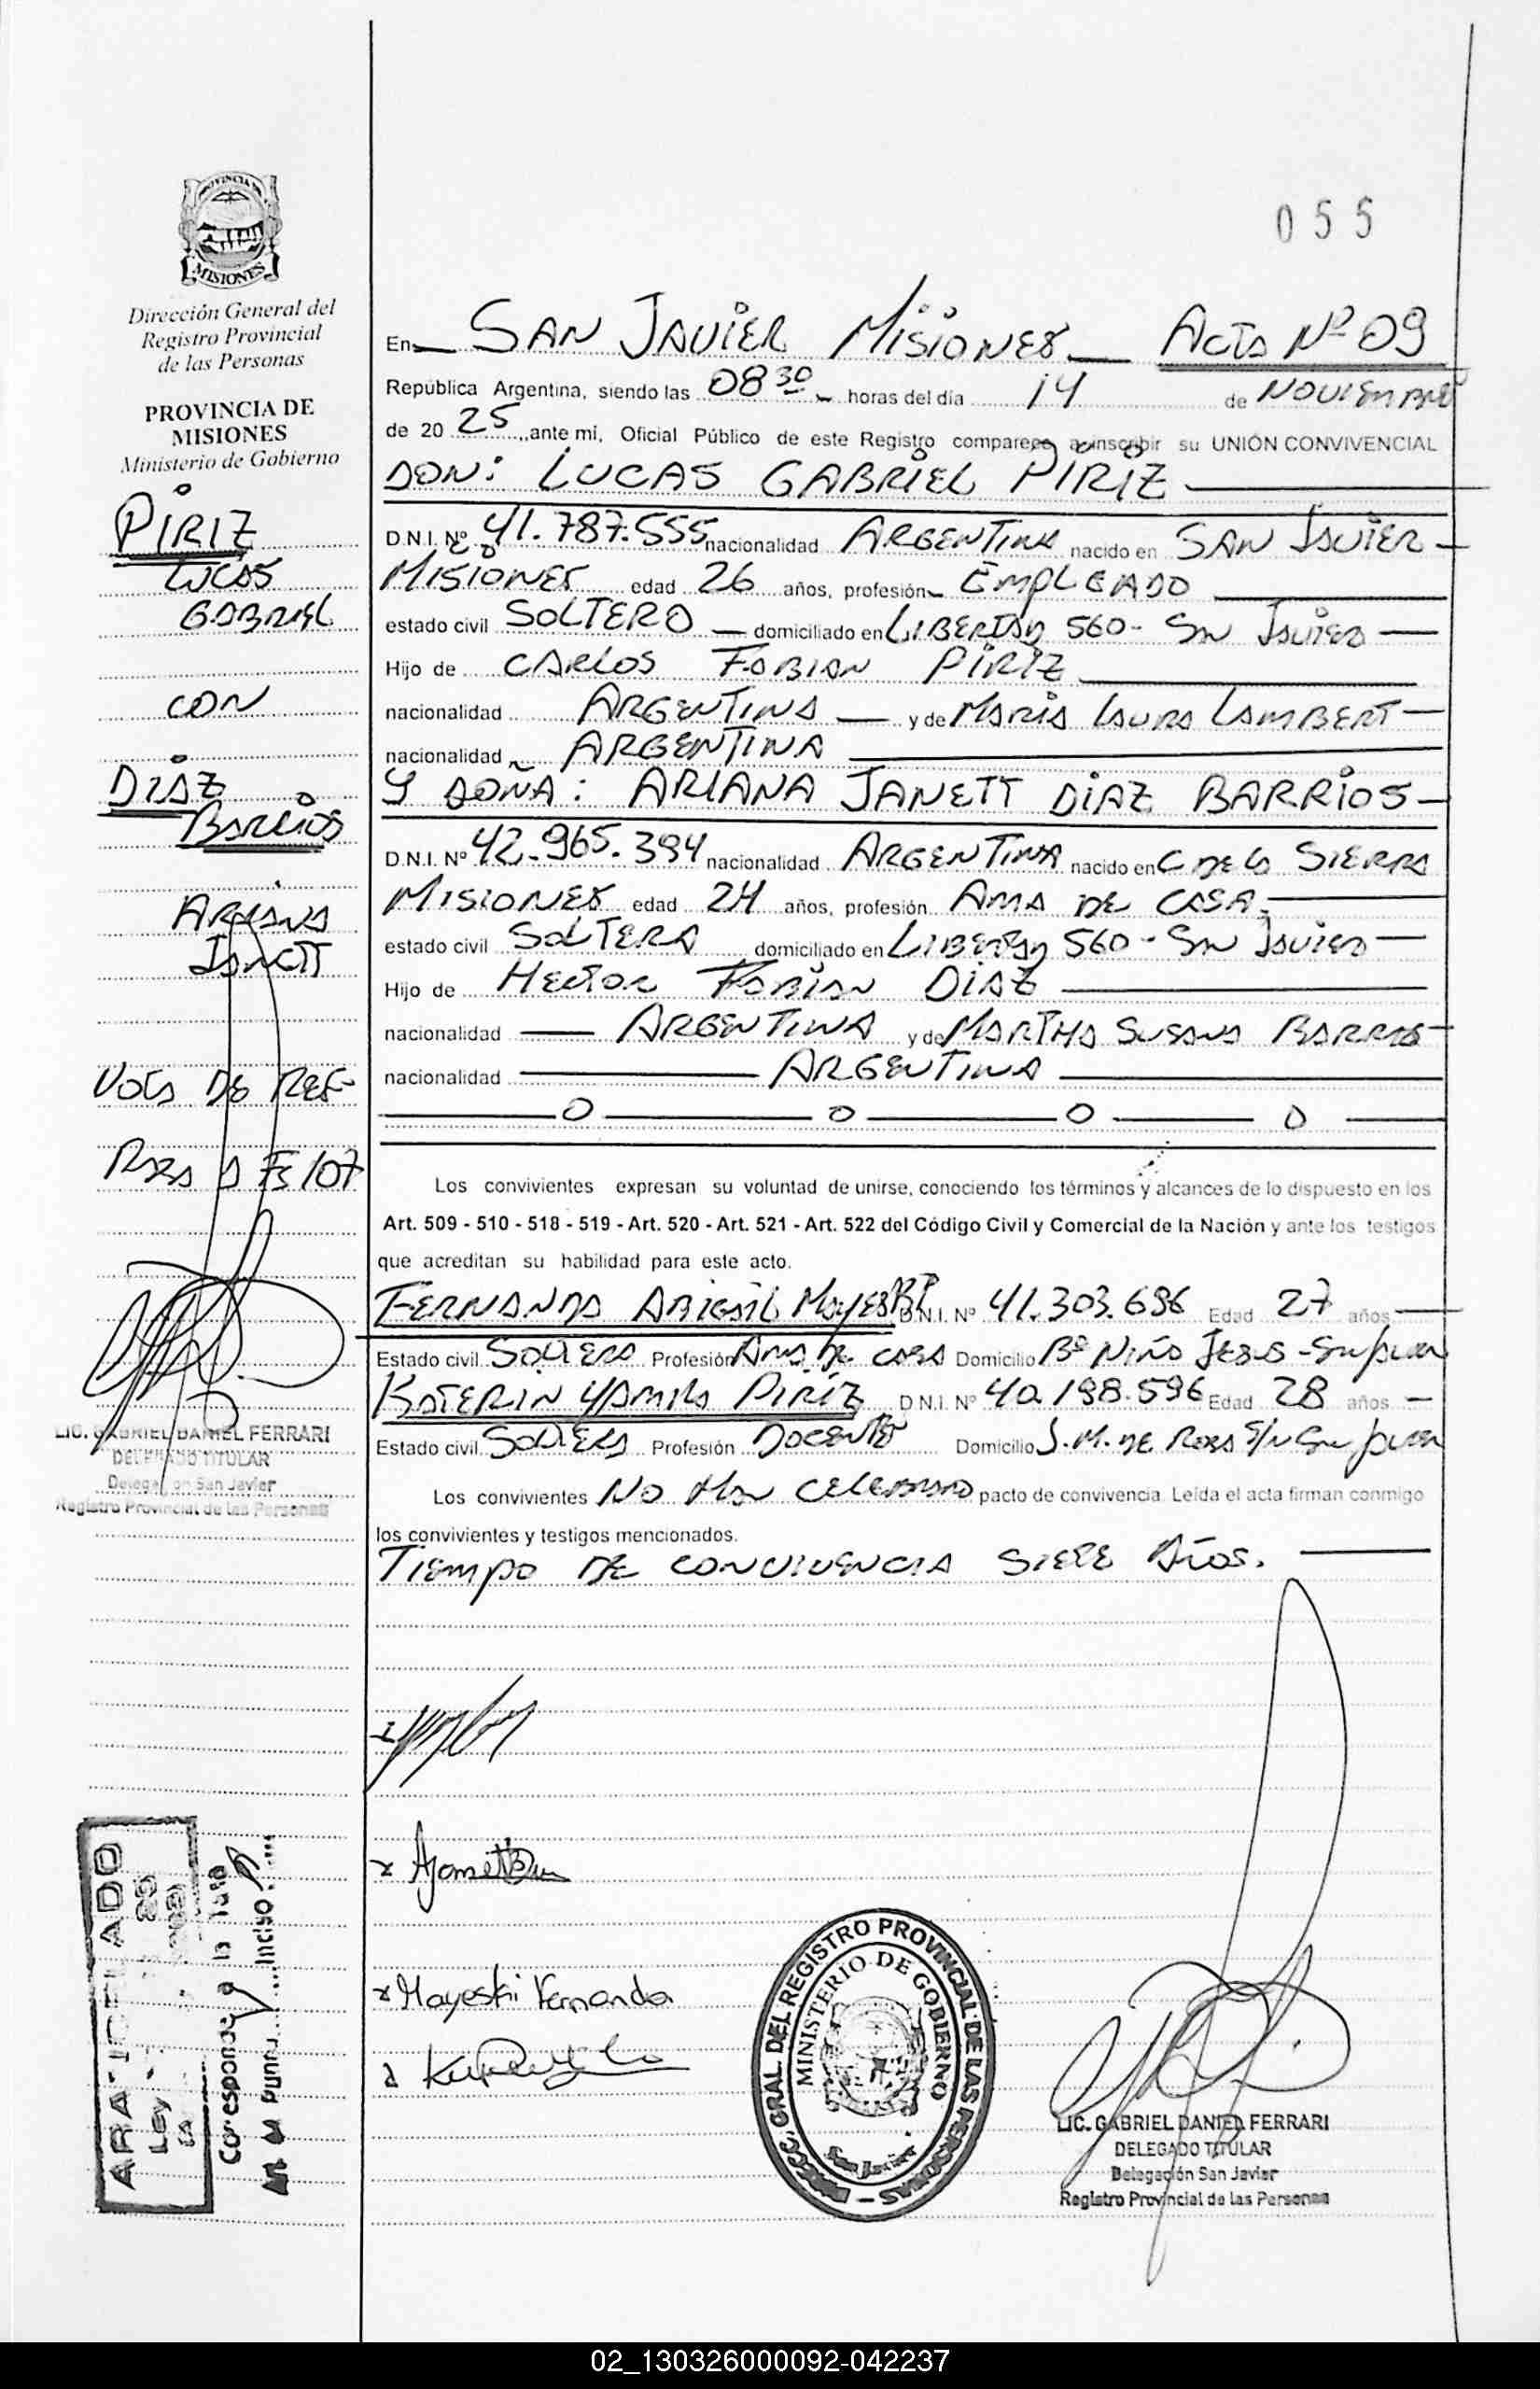 PROVINCIA DE
MISIONES
Dirección General del
Registro Provincial
de las Personas
PROVINCIA DE
MISIONES
Ministerio de Gobierno
PIRIZ
LUCAS
GABRIEL
CON
DIAZ
BARRIOS
ARIANA
JANETT
PASA A Fs 107
LIC. GABRIEL DANIEL FERRARI
DELEGADO TITULAR
Delegación San Javier
Registro Provincial de las Personas
ARANCELADO
Ley
Corresponde a la
Inciso
055
En SAN JAVIER MISIONES ACTA Nº 09
República Argentina, siendo las 08 30 horas del día 14 de NOVIEMBRE
de 20 25, ante mí, Oficial Público de este Registro comparece a inscribir su UNIÓN CONVIVENCIAL
DON: LUCAS GABRIEL PIRIZ
D.N.I. Nº 41.787.555 nacionalidad ARGENTINA nacido en SAN JAVIER
MISIONES edad 26 años, profesión EMPLEADO
estado civil SOLTERO domiciliado en LIBERTAD 560 - SAN JAVIER
Hijo de CARLOS FABIAN PIRIZ
nacionalidad ARGENTINA y de MARIA LAURA LAMBERT
nacionalidad ARGENTINA
Y DOÑA: ARIANA JANETT DIAZ BARRIOS
D.N.I. Nº 42.965.394 nacionalidad ARGENTINA nacido en C DE LA SIERRA
MISIONES edad 24 años, profesión AMA DE CASA
estado civil SOLTERA domiciliado en LIBERTAD 560 - SAN JAVIER
Hijo de HECTOR FABIAN DIAZ
nacionalidad ARGENTINA y de MARTHA SUSANA BARRIOS
nacionalidad ARGENTINA
Los convivientes expresan su voluntad de unirse, conociendo los términos y alcances de lo dispuesto en los
Art. 509 - 510 - 518 - 519 - Art. 520 - Art. 521 - Art. 522 del Código Civil y Comercial de la Nación y ante los testigos
que acreditan su habilidad para este acto.
FERNANDA ABIGAIL MAYESKI D.N.I. Nº 41.303.686 Edad 27 años
Estado civil SOLTERA Profesión AMA DE CASA Domicilio Bº NIÑO JESUS - San Javier
KATERIN YAMILA PIRIZ D.N.I. Nº 40.198.596 Edad 28 años
Estado civil SOLTERA Profesión DOCENTE Domicilio J.M. DE ROSAS S/N San Javier
Los convivientes NO HAN CELEBRADO pacto de convivencia. Leída el acta firman conmigo
los convivientes y testigos mencionados.
TIEMPO DE CONVIVENCIA SIETE AÑOS.
Mayeski Fernanda
DIRECC. GRAL. DEL REGISTRO PROVINCIAL DE LAS PERSONAS
MINISTERIO DE GOBIERNO
San Javier
LIC. GABRIEL DANIEL FERRARI
DELEGADO TITULAR
Delegación San Javier
Registro Provincial de las Personas
02_130326000092-042237